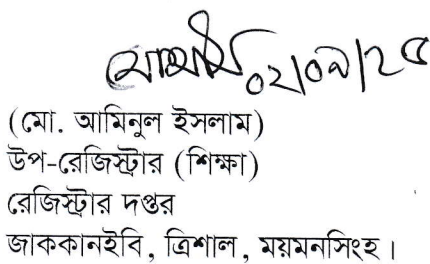 ০২/০৯/২৫
(মো. আমিনুল ইসলাম)
উপ-রেজিস্ট্রার (শিক্ষা)
রেজিস্ট্রার দপ্তর
জাককানইবি, ত্রিশাল, ময়মনসিংহ।